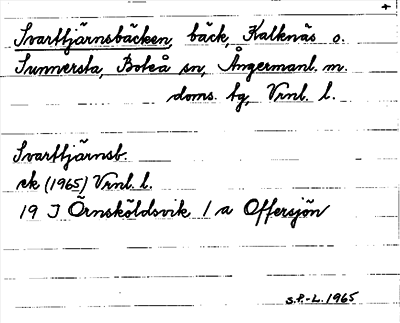 Svarttjärnsbäcken, bäck, Kalknäs o.
Sunnersta, Boteå sn, Ångermanl. m.
doms. bg, Vrnl. l.
Svarttjärnsb.
ek (1965) Vrnl. l.
19 J Örnsköldsvik 1 a Offersjön
S.P.-L. 1965